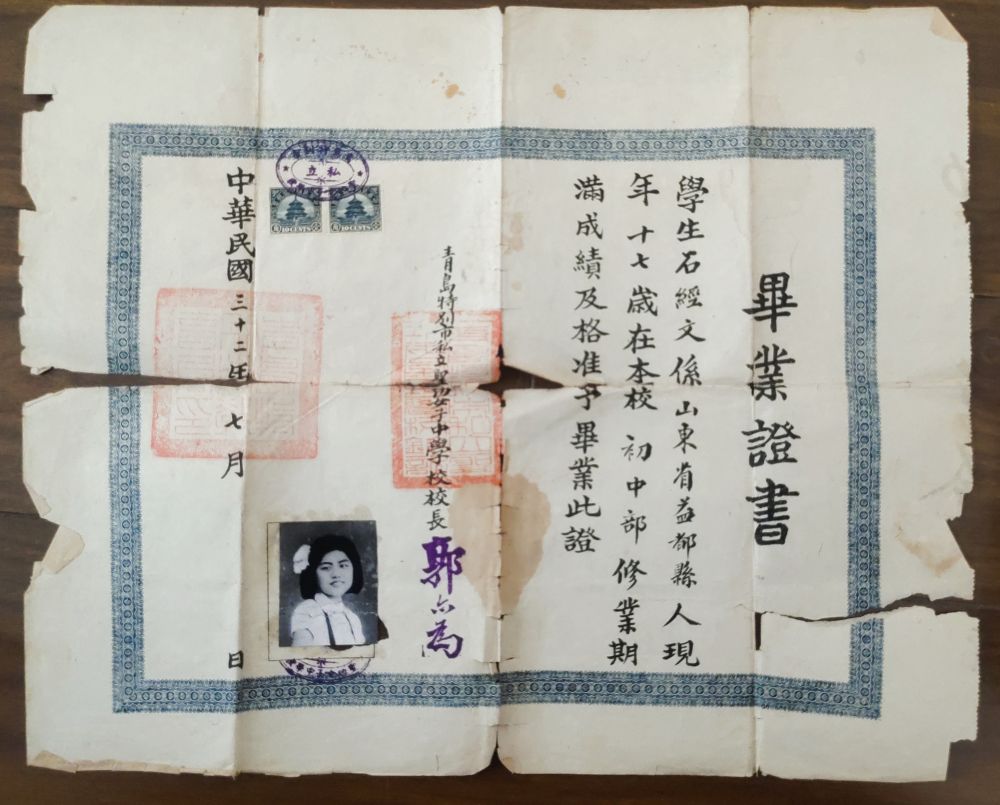 畢業證書
學生石經文係山東省益都縣人現
年十七歲在本校初中部修業期
滿成績及格准予畢業此證
青島特別市私立聖功女子中學校校長
中華民國三十二年七月 日
私立
10 CENTS
10 CENTS